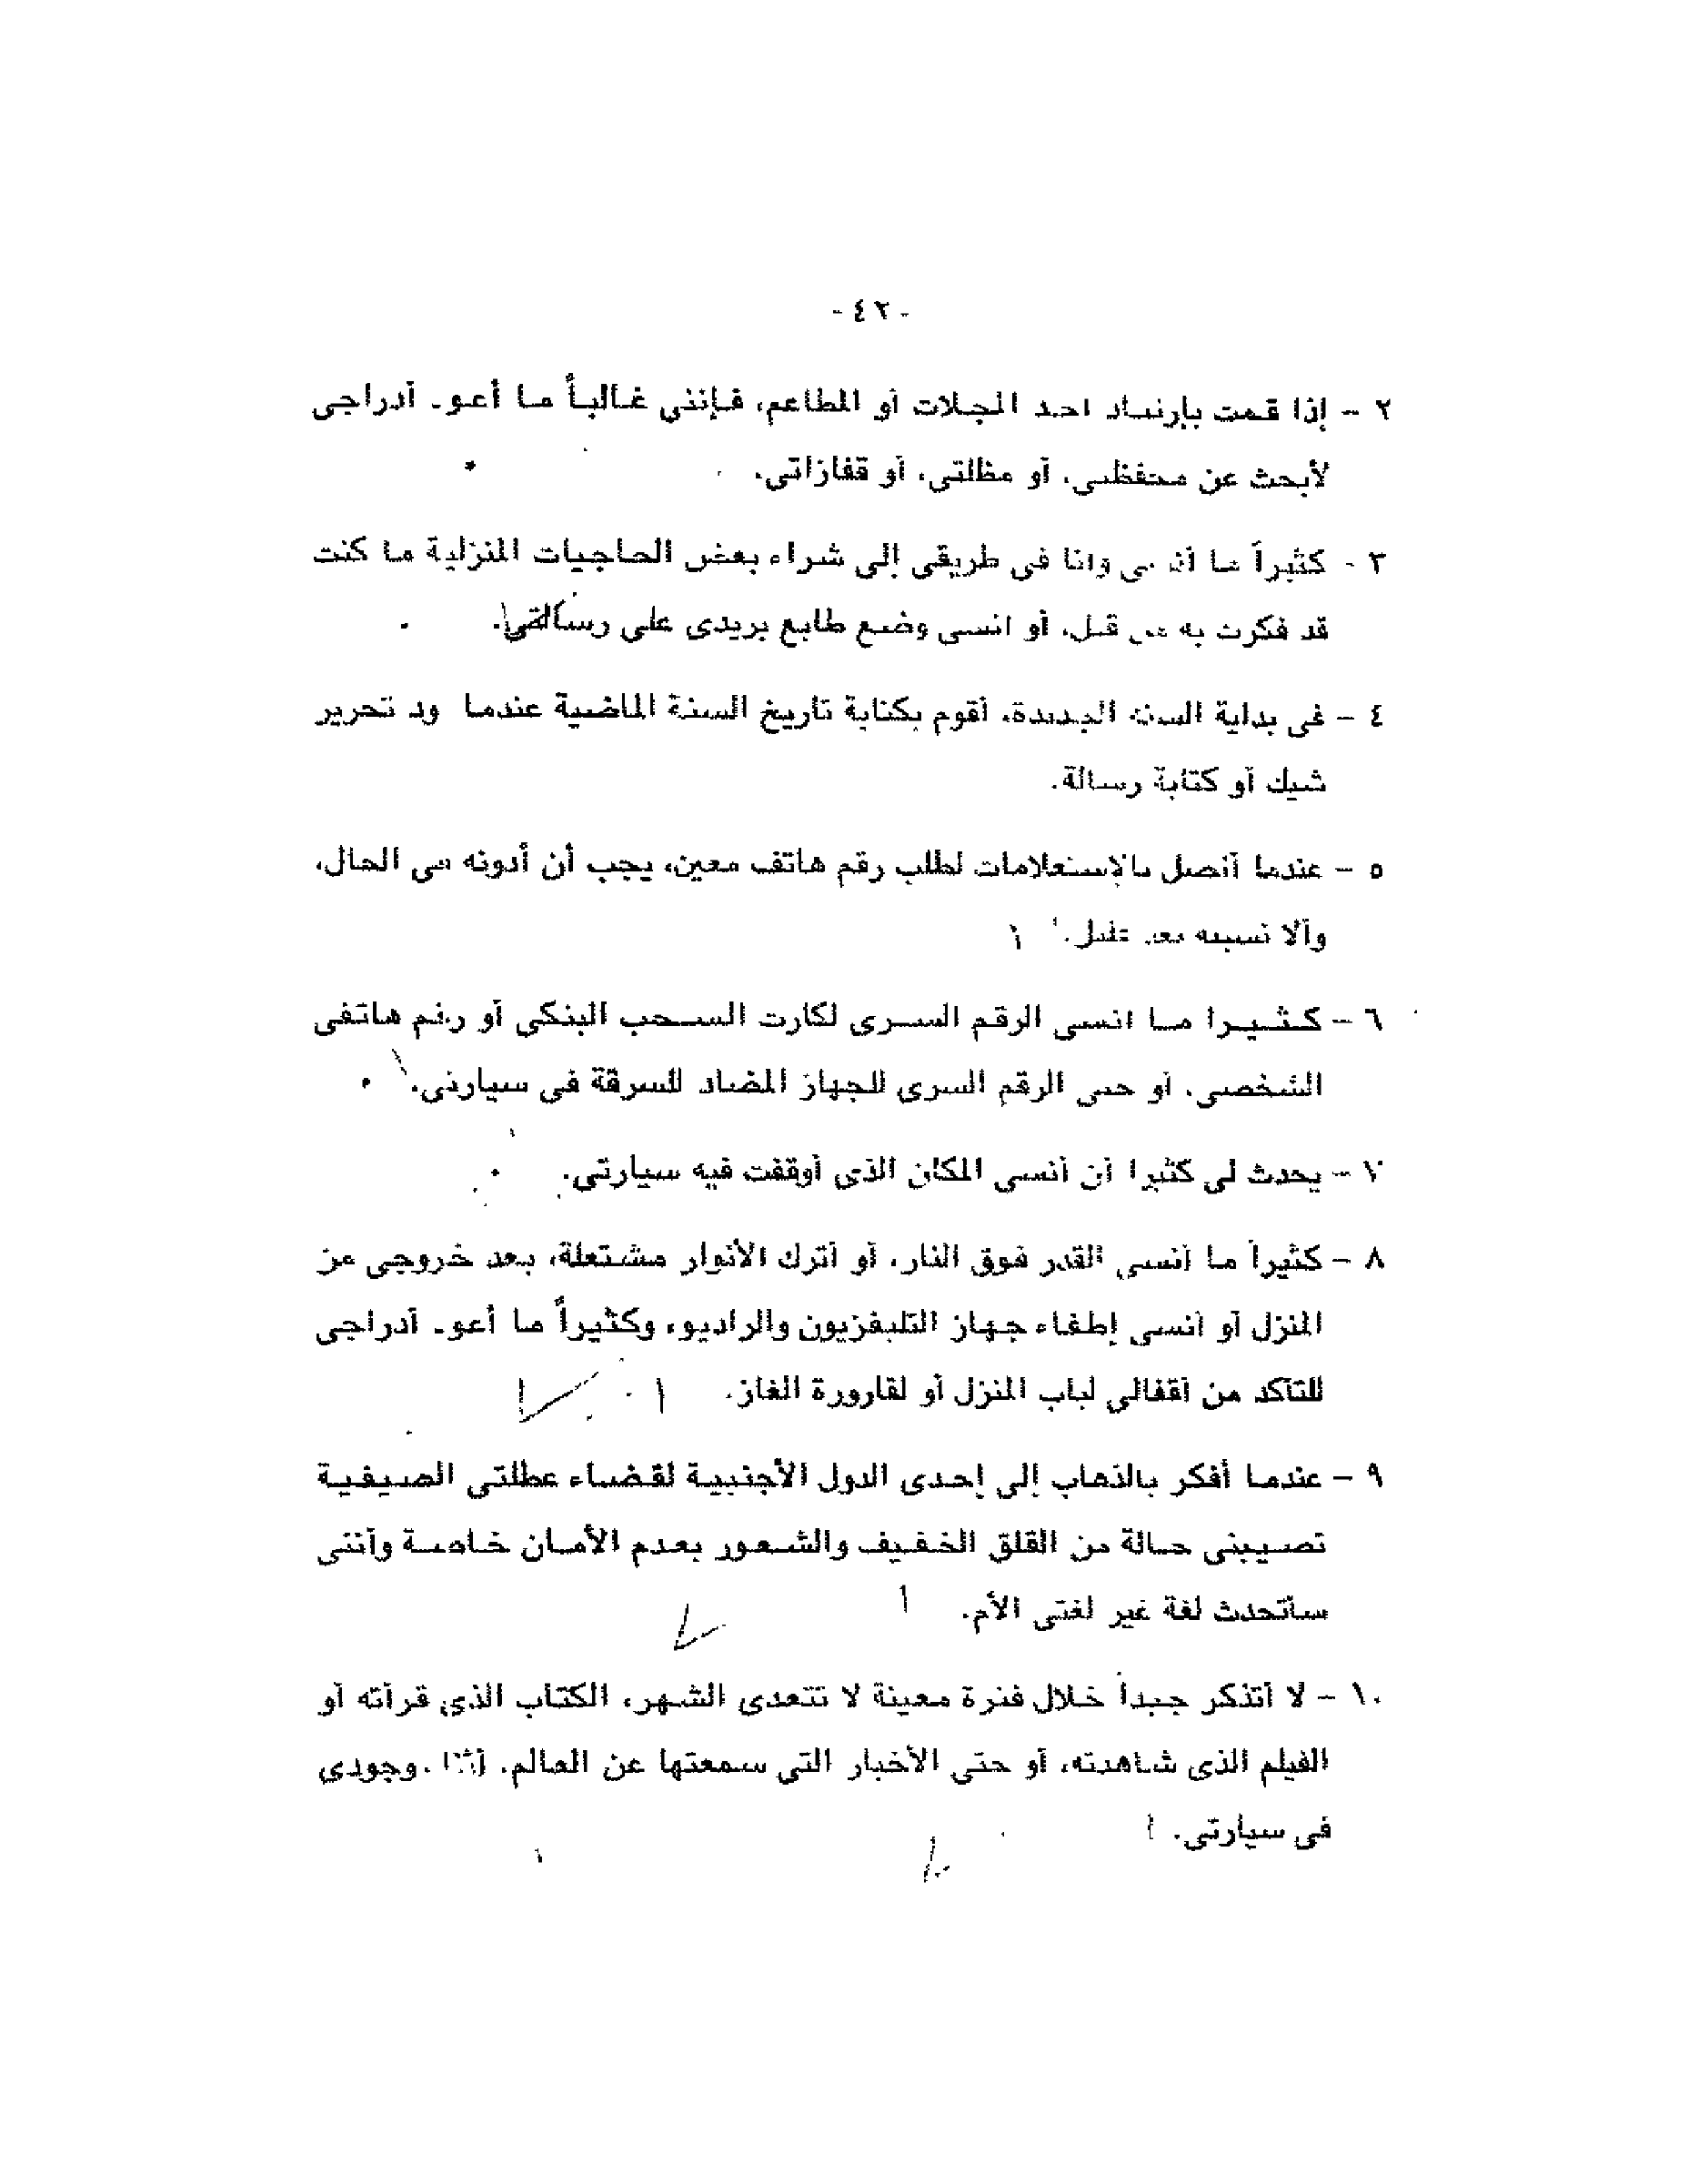 - ٤٢ -
٢ - إذا قمت بإرتياد احد المحلات أو المطاعم، فإننى غالباً ما أعود أدراجى
لأبحث عن محفظتى، أو مظلتى، أو قفازاتى.
٣ - كثيراً ما أنسى وانا فى طريقى إلى شراء بعض الحاجيات المنزلية ما كنت
قد فكرت به من قبل، أو انسى وضع طابع بريدى على رسالتى.
٤ - فى بداية السنة الجديدة، أقوم بكتابة تاريخ السنة الماضية عندما أود تحرير
شيك أو كتابة رسالة.
٥ - عندما أتصل بالإستعلامات لطلب رقم هاتف معين، يجب أن أدونه فى الحال،
وألا نسيته بعد قليل.
٦ - كثيرا ما انسى الرقم السرى لكارت السحب البنكى أو رقم هاتفى
الشخصى، أو حتى الرقم السرى للجهاز المضاد للسرقة فى سيارتى.
٧ - يحدث لى كثيرا أن أنسى المكان الذى أوقفت فيه سيارتى.
٨ - كثيراً ما أنسى القدر فوق النار، أو أترك الأنوار مشتعلة، بعد خروجى من
المنزل أو أنسى إطفاء جهاز التليفزيون والراديو، وكثيراً ما أعود أدراجى
للتأكد من أقفالى لباب المنزل أو لقارورة الغاز.
٩ - عندما أفكر بالذهاب إلى إحدى الدول الأجنبية لقضاء عطلتى الصيفية
تصيبنى حالة من القلق الخفيف والشعور بعدم الأمان خاصة وأننى
سأتحدث لغة غير لغتى الأم.
١٠ - لا أتذكر جيداً خلال فترة معينة لا تتعدى الشهر، الكتاب الذى قرأته أو
الفيلم الذى شاهدته، أو حتى الأخبار التى سمعتها عن العالم، أثناء وجودى
فى سيارتى.